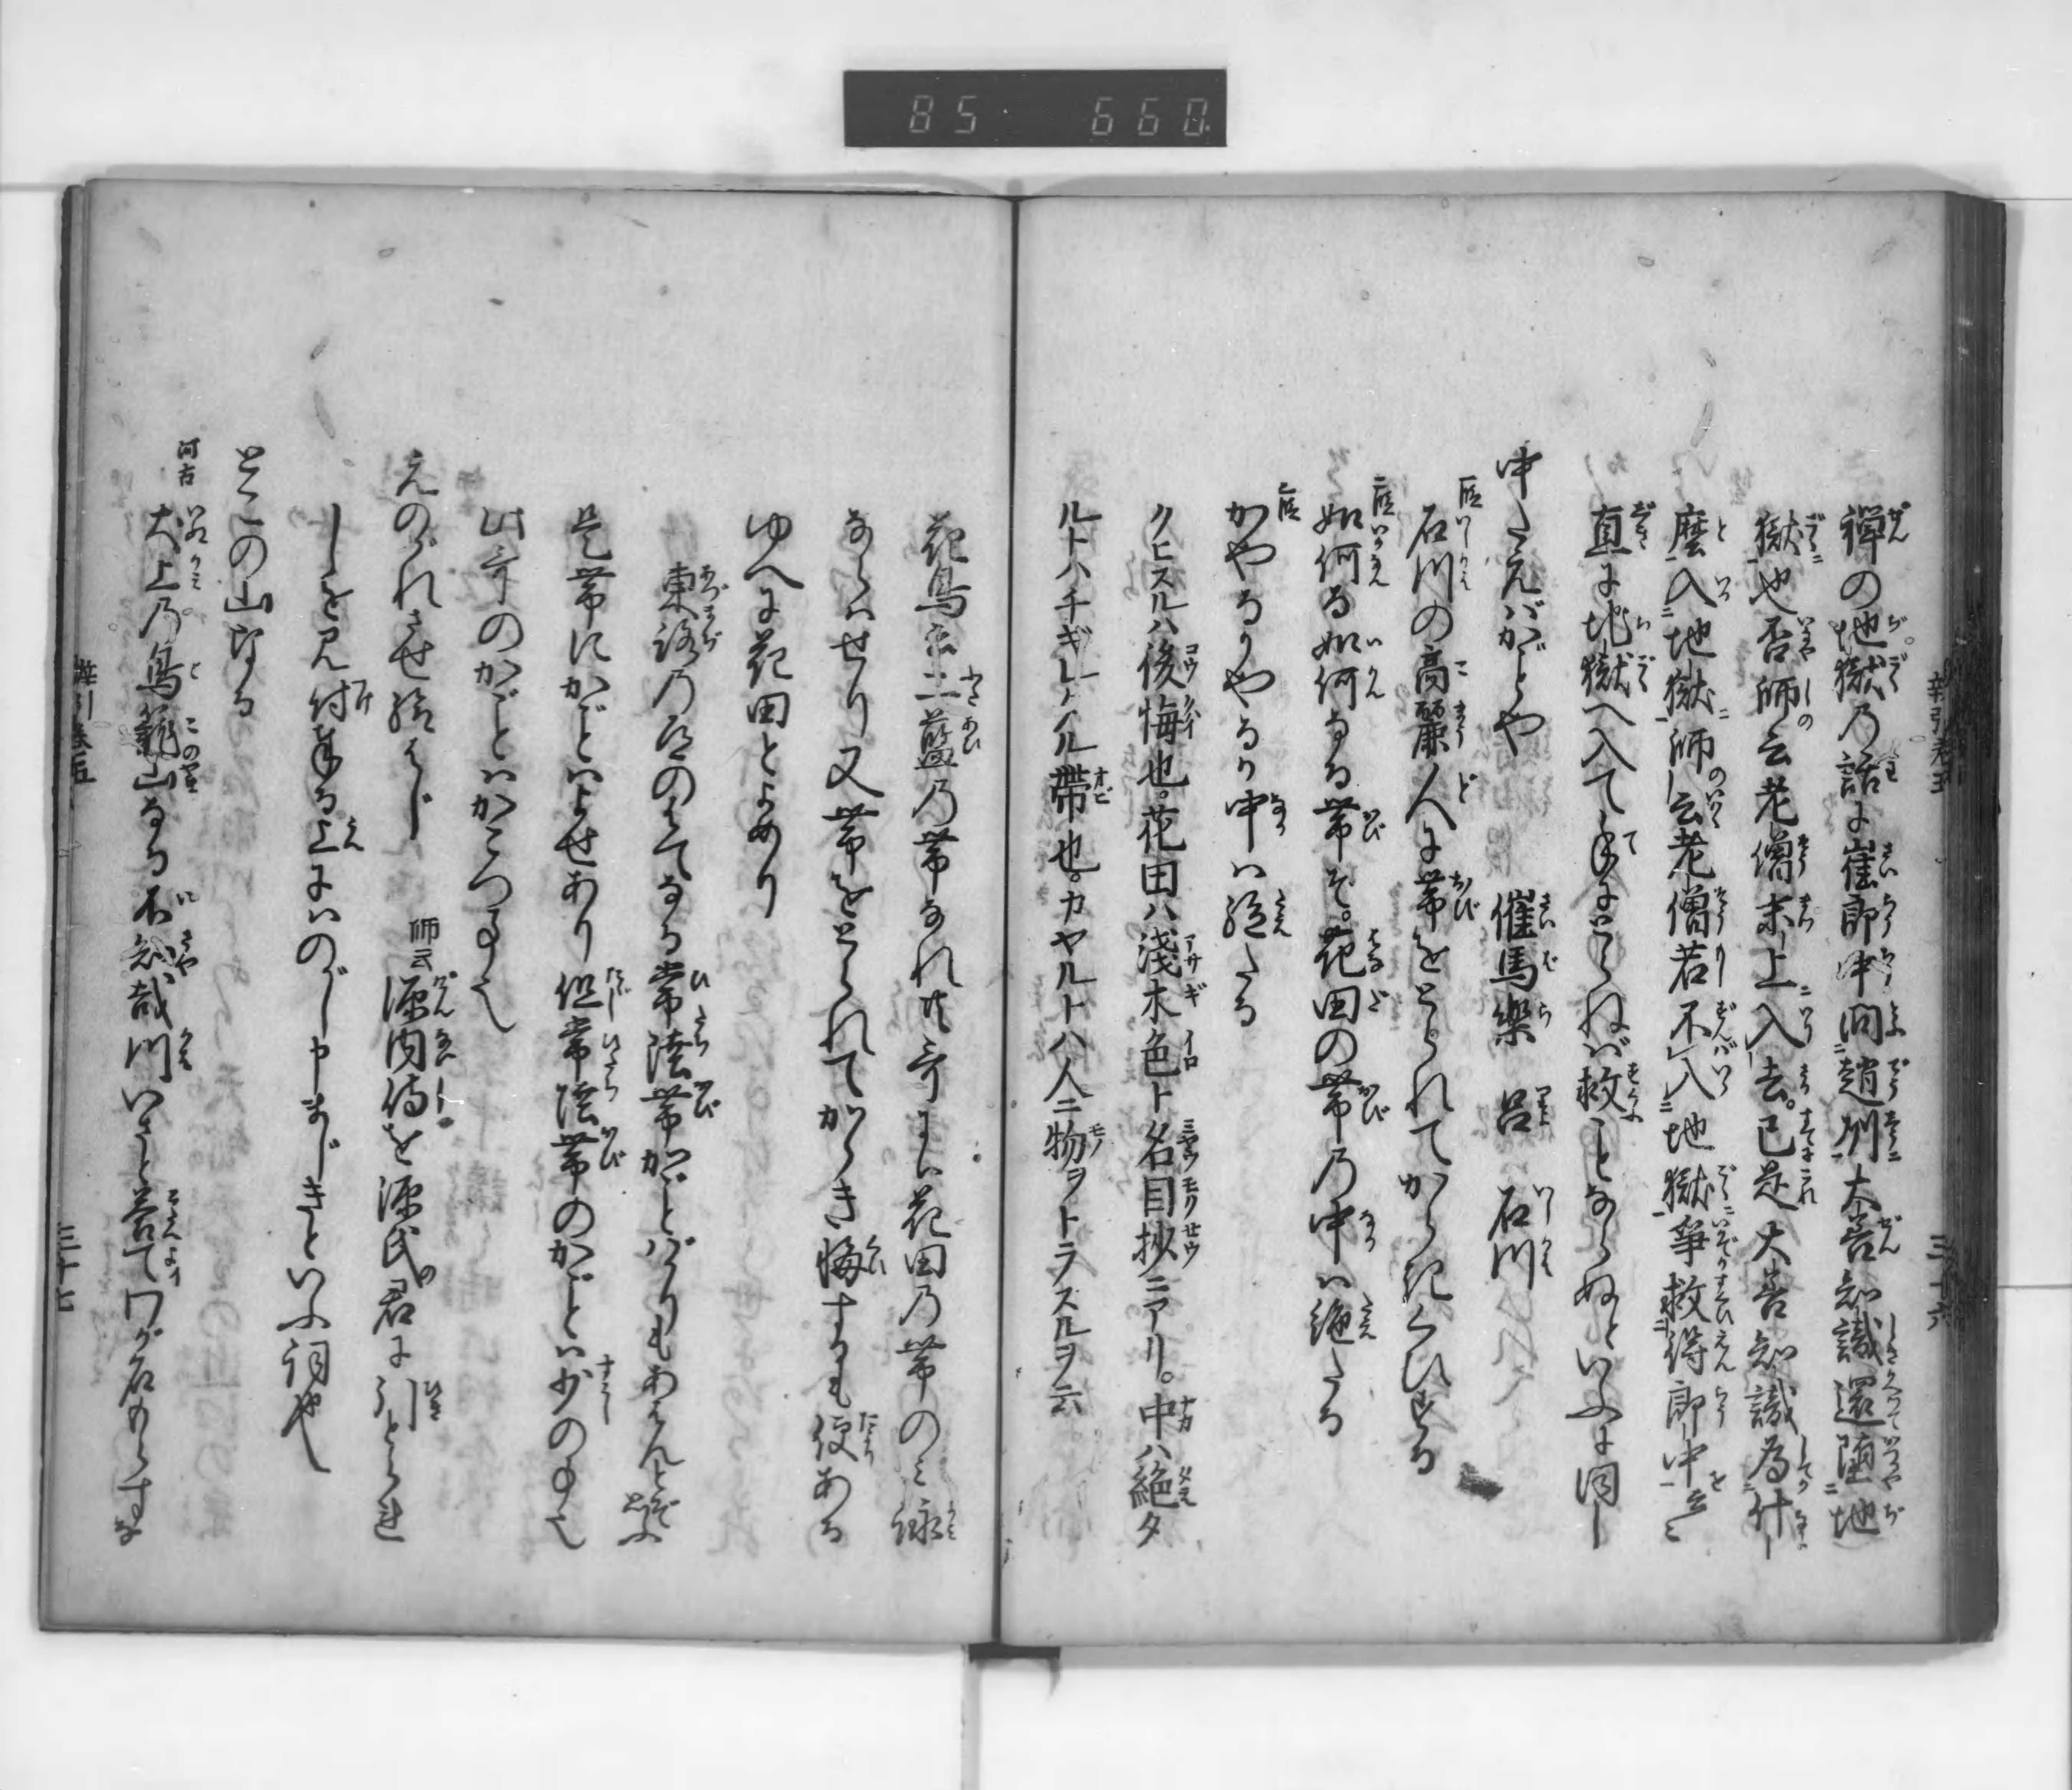 85 660
禅の地獄の話に崔郎中問趙州大善知識還堕地
獄也否師云老僧末上入去。已是大善知識為什
麼入地獄師云老僧若不入地獄争救得郎中云々
直に地獄へ入て手にとらねば救ことならぬといふに同し
中たえばかごとや 催馬樂 呂 石川
石川の高麗人に帯をとられてからきくひする
如何る如何なる帯そ。花田の帯の中は絶たる
かやるかやるか中は絶たる
クヒスルハ後悔也。花田ハ淺木色ト名目抄ニアリ。中ハ絶タ
ルトハチギレタル帯也。カヤルトハ人ニ物ヲトラスルヲ云
三十六
花鳥云二藍の帯なれ共哥には花田の帯のよし詠
ならはせり又帯をとられてからき悔するも便ある
ゆへに花田とよめり
東路の道のはてなる常陸帯かごとばかりもあはんとぞ思ふ
是帯にかごとはよせあり但常陸帯のかごとは少の事也
此哥のかごとはかこつ事也
えのがれさせ給はじ 師云 源内侍を源氏の君に引とられ
しを見付奉る上はのがし申まじきといふ詞也
とこの山なる
河古 犬上の鳥籠山なる不知哉川いさと答てワが名もらすな
三十七